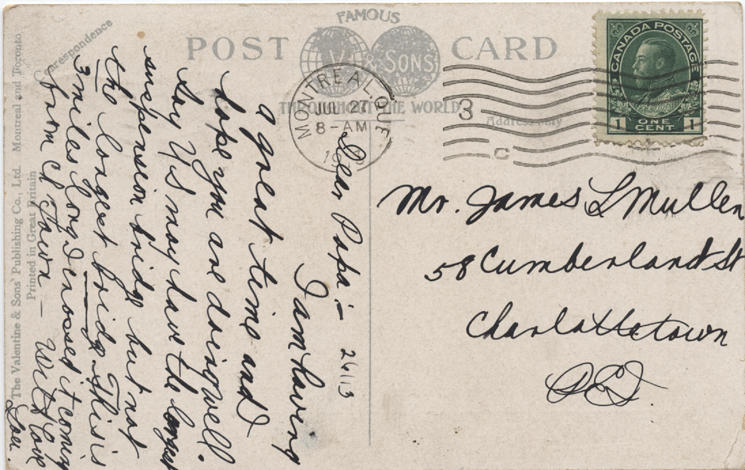 FAMOUS
POST V & SONS CARD
THROUGHOUT THE WORLD
Correspondence
Address Only
MONTREAL QUE
JUL 27
8-AM
3
C
CANADA POSTAGE
1 ONE CENT 1
Mr. James L Mullen
58 Cumberland St
Charlottetown
PEI
Dear Papa:-
I am having
a great time and I
hope you are doing well.
Say US may have the longest
suspension bridge but not
the longest bridge. This is
3 miles long I crossed it coming
from Ch Town — With love
26113
The Valentine & Sons' Publishing Co., Ltd. Montreal and Toronto
Printed in Great Britain